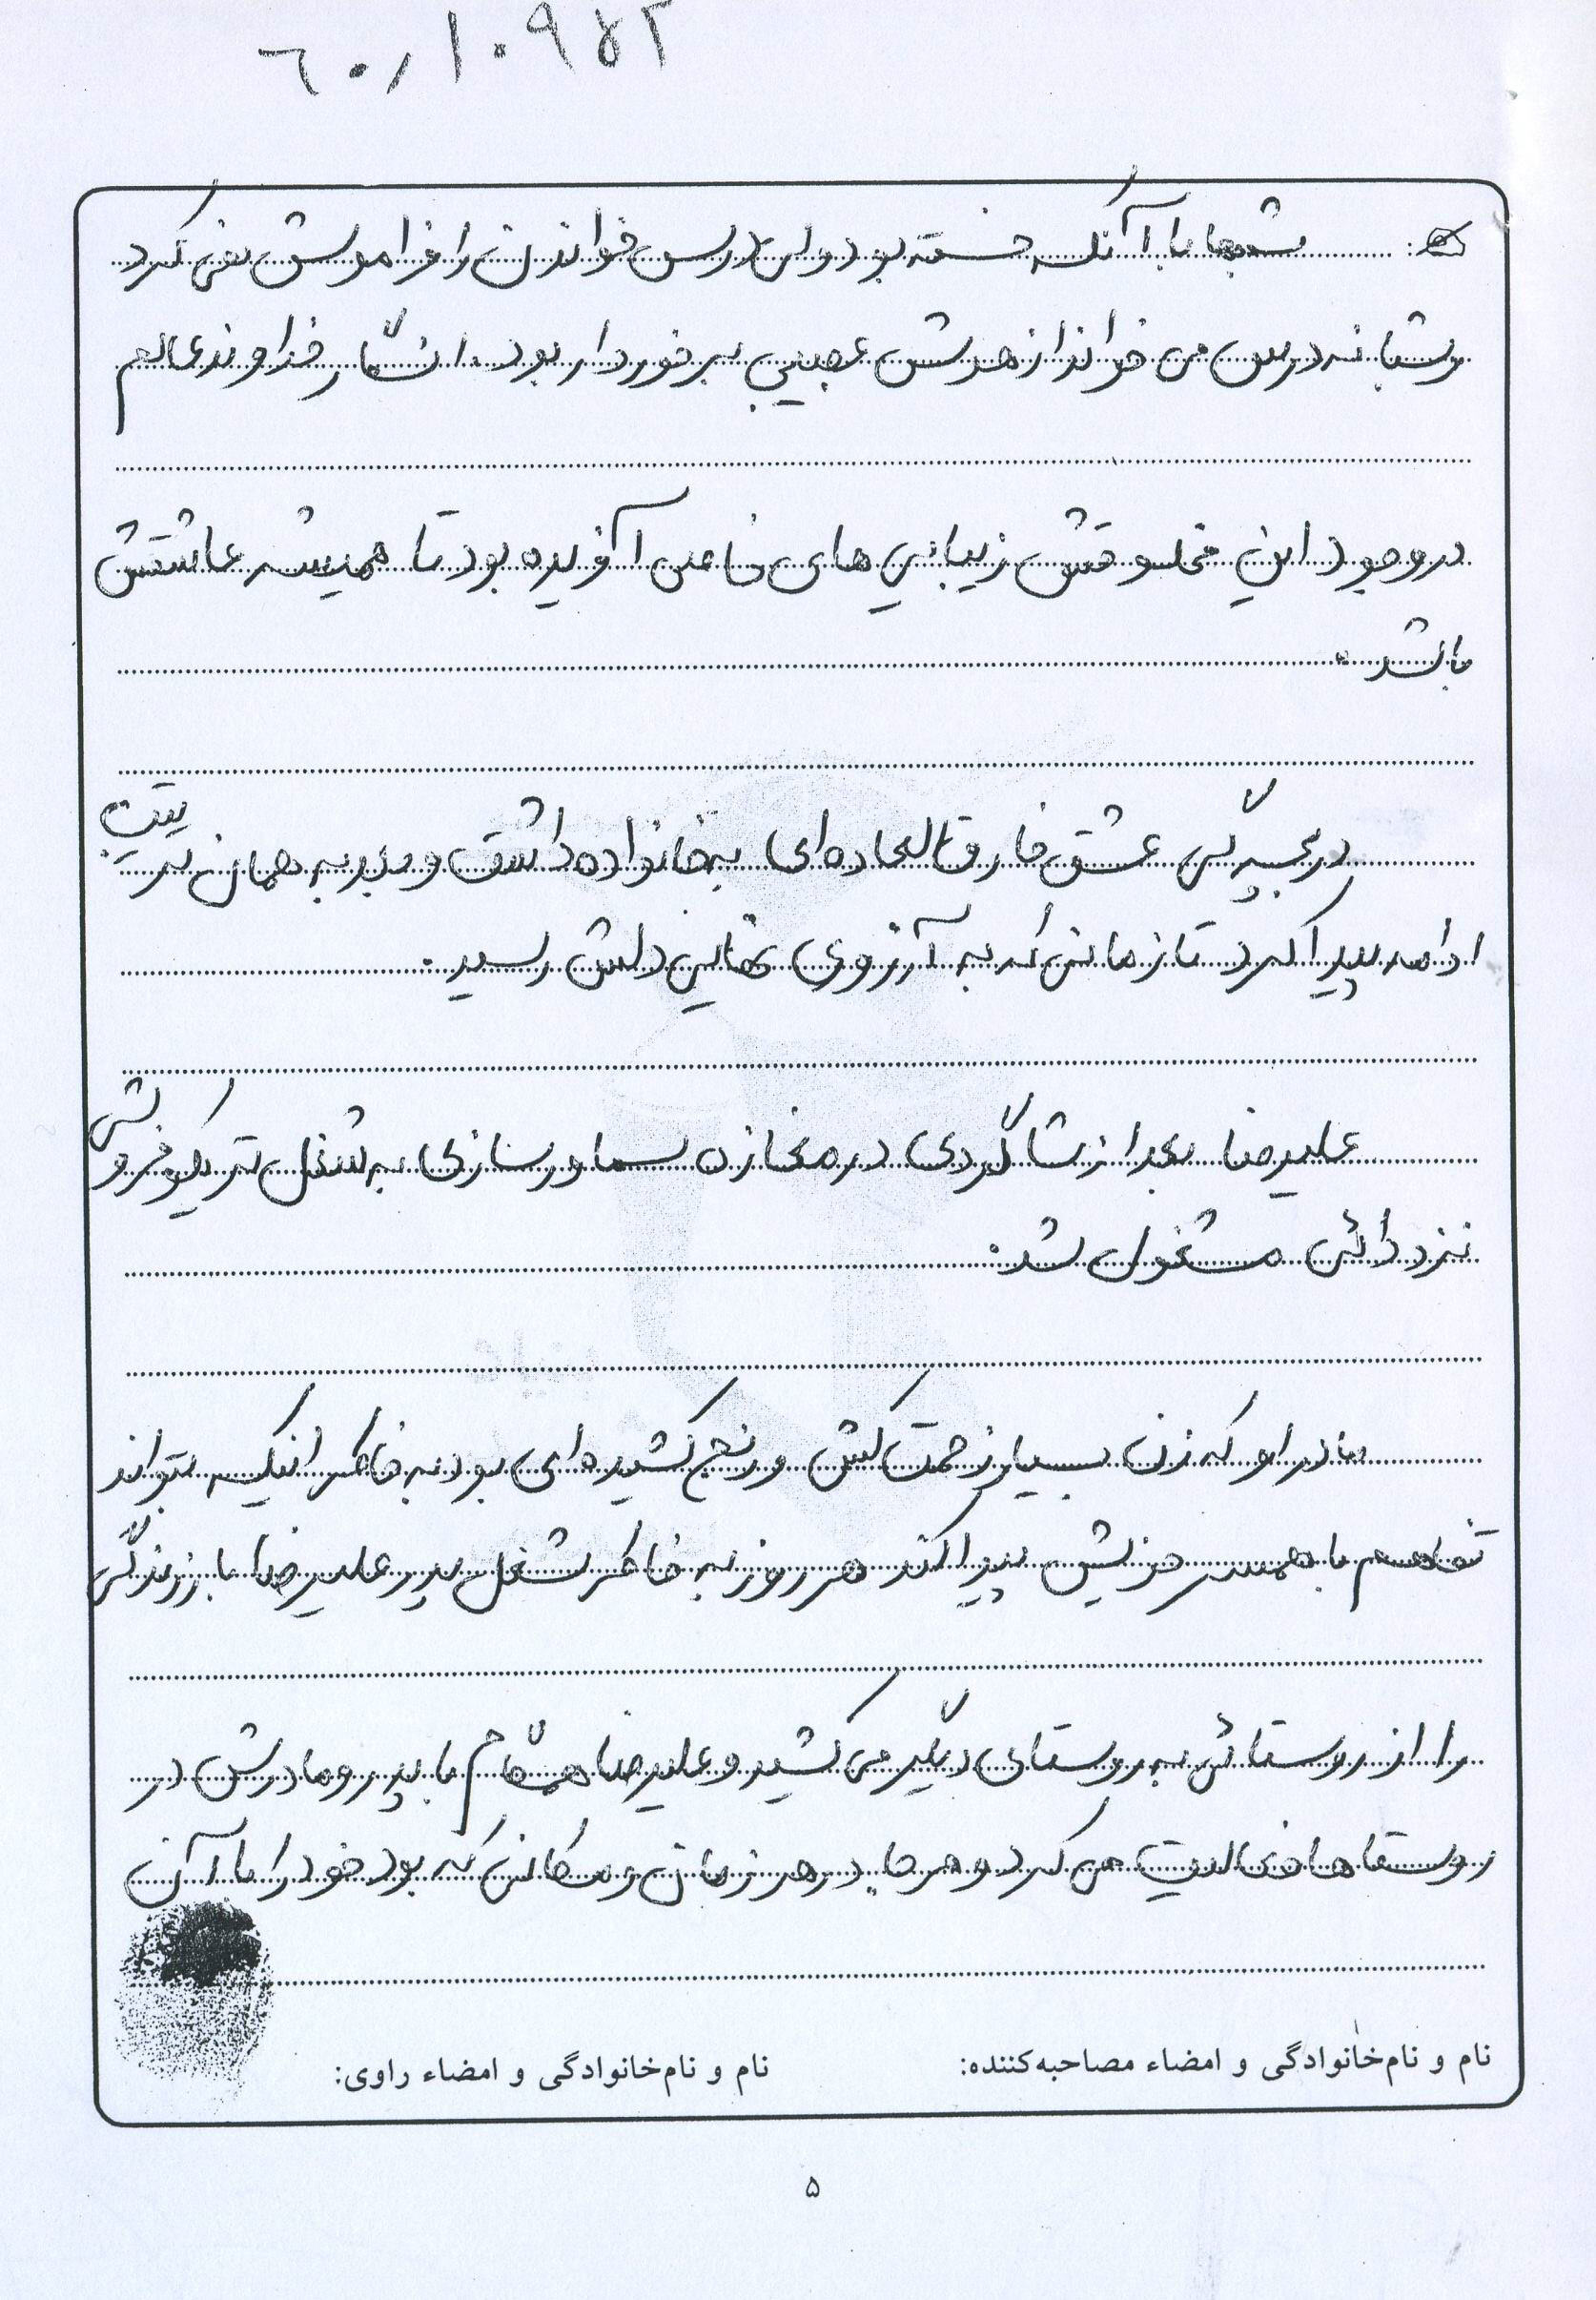 ۶۰۱۰۹۵۲
شبها با آنکه خسته بود ولی درس خواندن را فراموش نمی کرد
و شبانه درس می خواند از هوش عجیبی برخوردار بود. انگار خداوند عالم
در وجود این مخلوقش زیبایی های خاصی آفریده بود تا همیشه عاشقش
باشد.
در بچگی عشق خارق العاده ای به خانواده داشت و به همان ترتیب
ادامه پیدا کرد تا زمانی که به آرزوی نهایی دلش رسید.
علیرضا بعد از شاگردی در مغازه سماور سازی به شغل تریکو فروشی
نزد دائی مشغول شد.
مادر او که زن بسیار زحمت کش و رنج کشیده ای بود به خاطر اینکه بتواند
تفاهم با همسر خویش پیدا کند هر روز به خاطر شغل پدر علیرضا بار زندگی
را از روستائی به روستای دیگر می کشید و علیرضا همگام با پدر و مادرش در
روستاها فعالیت می کرد و هر جا در هر زمان و مکانی که بود خود را با آن
نام و نام‌خانوادگی و امضاء مصاحبه‌کننده: نام و نام‌خانوادگی و امضاء راوی:
۵